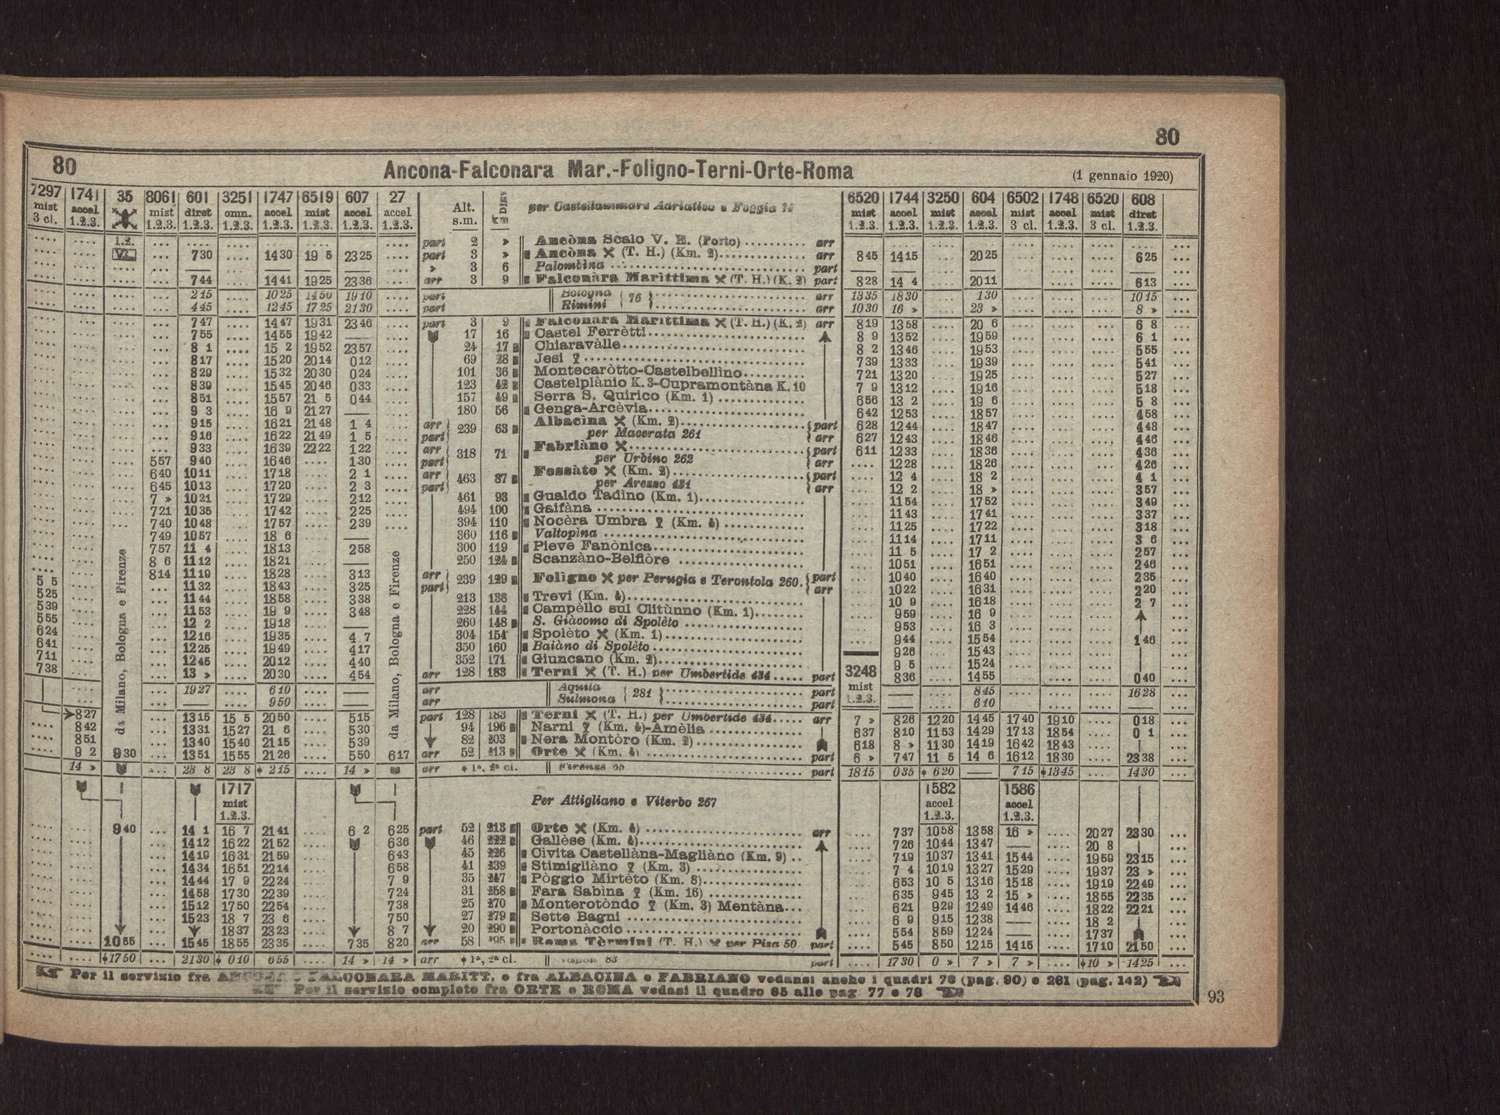 80
80 Ancona-Falconara Mar.-Foligno-Terni-Orte-Roma (1 gennaio 1920)
7297 1741 35 8061 601 3251 1747 6519 607 27 Alt. km per Castellammare Adriatico e Foggia 6520 1744 3250 604 6502 1748 6520 608
mist accel mist diret omn. accel mist accel accel s.m. mist accel mist accel mist accel mist diret
3 cl. 1.2.3. 1.2.3. 1.2.3. 1.2.3. 1.2.3. 1.2.3. 1.2.3. 1.2.3. 1.2.3. 1.2.3. 1.2.3. 1.2.3. 3 cl. 1.2.3. 3 cl. 1.2.3.
1.2. part 2 » Ancòna Scalo V. E. (Porto) arr
730 1430 19 5 2325 part 3 » Ancòna (T. H.) (Km. 2) arr 845 1415 2025 625
» 3 6 Palombina part
744 1441 1925 2336 arr 3 9 Falconàra Marìttima (T. H.) (K. 2) part 828 14 4 2011 613
215 1025 1450 1910 part Bologna 76 arr 1335 1830 130 1015
445 1245 1725 2130 part Rimini arr 1030 16 » 23 » 8 »
747 1447 1931 2346 part 3 9 Falconàra Marìttima (T. H.) (K. 2) arr 819 1358 20 6 6 8
755 1455 1942 17 16 Castel Ferrètti 8 9 1352 1959 6 1
8 1 15 2 1952 2357 24 17 Chiaravàlle 8 2 1346 1953 555
817 1520 2014 012 69 28 Jesi 739 1333 1939 541
829 1532 2030 024 101 36 Montecaròtto-Castelbellino 721 1320 1925 527
839 1545 2046 033 123 42 Castelplànio K. 3-Cupramontàna K. 10 7 9 1312 1916 518
851 1557 21 5 044 157 49 Serra S. Quirico (Km. 1) 656 13 2 19 6 5 8
9 3 16 9 2127 180 56 Genga-Arcèvia 642 1253 1857 458
915 1621 2148 1 4 arr 239 63 Albacìna (Km. 2) part 628 1244 1847 448
916 1622 2149 1 5 part per Macerata 261 arr 627 1243 1846 446
933 1639 2222 122 arr 318 71 Fabriàno part 611 1233 1836 436
557 940 1646 130 part per Urbino 262 arr 1228 1826 426
640 1011 1718 2 1 arr 463 87 Fossàto (Km. 2) part 12 4 18 2 4 1
645 1013 1720 2 3 part per Arezzo 431 arr 12 2 18 » 357
7 » 1021 1729 212 461 93 Gualdo Tadìno (Km. 1) 1154 1752 349
721 1035 1742 225 494 100 Gaifàna 1143 1741 337
740 1048 1757 239 394 110 Nocèra Umbra (Km. 4) 1125 1722 318
749 1057 18 6 360 116 Valtopina 1114 1711 3 6
757 11 4 1813 258 300 119 Pieve Fanònica 11 5 17 2 257
8 6 1112 1821 250 124 Scanzàno-Belfiòre 1051 1651 246
5 5 814 1119 1828 313 arr 239 129 Foligno per Perugia e Terontola 260. part 1040 1640 235
525 1132 1843 325 part arr 1022 1631 220
539 1144 1858 338 213 136 Trevi (Km. 4) 10 9 1618 2 7
555 1153 19 9 348 228 144 Campèllo sul Clitùnno (Km. 1) 959 16 9
624 12 2 1918 260 148 S. Giàcomo di Spolèto 953 16 3
641 1216 1935 4 7 304 154 Spolèto (Km. 1) 944 1554 146
711 1225 1949 417 350 160 Baiàno di Spolèto 926 1543
738 1245 2012 440 352 171 Giuncano (Km. 2) 9 5 1524
13 » 2030 454 arr 128 183 Terni (T. H.) per Umbertide 434 part 3248 836 1455 040
1927 610 arr Aquila 281 part mist 845 1628
950 arr Sulmona part 1.2.3. 610
827 1315 15 5 2050 515 part 128 183 Terni (T. H.) per Umbertide 434 arr 7 » 826 1220 1445 1740 1910 018
842 1331 1527 21 6 530 94 196 Narni (Km. 4)-Amèlia 637 810 1153 1429 1713 1854 0 1
851 1340 1540 2115 539 82 203 Nera Montòro (Km. 2) 618 8 » 1130 1419 1642 1843
9 2 930 1351 1555 2126 550 617 arr 52 213 Orte (Km. 4) part 6 » 747 11 5 14 6 1612 1830 2338
14 » 23 8 23 8 215 14 » arr 1ª, 2ª cl. Firenze 65 part 1815 035 620 715 1345 1430
da Milano, Bologna e Firenze
da Milano, Bologna e Firenze
1717 1582 1586
mist Per Attigliano e Viterbo 267 accel accel
1.2.3. 1.2.3. 1.2.3.
940 14 1 16 7 2141 6 2 625 part 52 213 Orte (Km. 4) arr 737 1058 1358 16 » 2027 2330
1412 1622 2152 636 46 222 Gallèse (Km. 4) 726 1044 1347 20 8
1419 1631 2159 643 45 226 Cìvita Castellàna-Magliàno (Km. 9) 719 1037 1341 1544 1959 2315
1434 1651 2214 658 41 239 Stimigliàno (Km. 3) 7 4 1019 1327 1529 1937 23 »
1444 17 9 2224 7 9 35 247 Pòggio Mirtèto (Km. 8) 653 10 5 1316 1518 1919 2249
1458 1730 2239 724 31 258 Fara Sabìna (Km. 16) 635 945 13 2 15 » 1855 2235
1512 1750 2254 738 25 270 Monterotòndo (Km. 3) Mentàna 621 929 1249 1446 1822 2221
1523 18 7 23 6 750 27 279 Sette Bagni 6 9 915 1238 18 2
1837 2323 8 7 20 290 Portonàccio 554 859 1224 1737
1055 1545 1855 2335 735 820 arr 58 295 Roma Tèrmini (T. H.) per Pisa 50 part 545 850 1215 1415 1710 2150
1750 2130 010 655 14 » 14 » arr 1ª, 2ª cl. Napoli 83 part 1730 0 » 7 » 7 » 10 » 1425
Per il servizio fra ANCONA - FALCONARA MARITT. e fra ALBACINA e FABRIANO vedansi anche i quadri 76 (pag. 90) e 261 (pag. 142)
Per il servizio completo fra ORTE e ROMA vedasi il quadro 65 alle pag 77 e 78
93